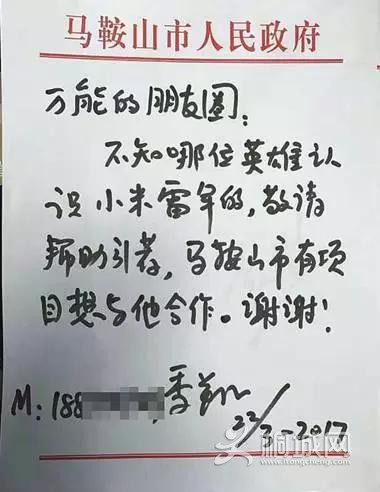 马鞍山市人民政府
万能的朋友圈:
不知哪位英雄认
识小米雷军的,敬请
帮助引荐,马鞍山市有项
目想与他合作。谢谢!
M:188
季翔
22/3-2017
桐城网
www.itongcheng.com